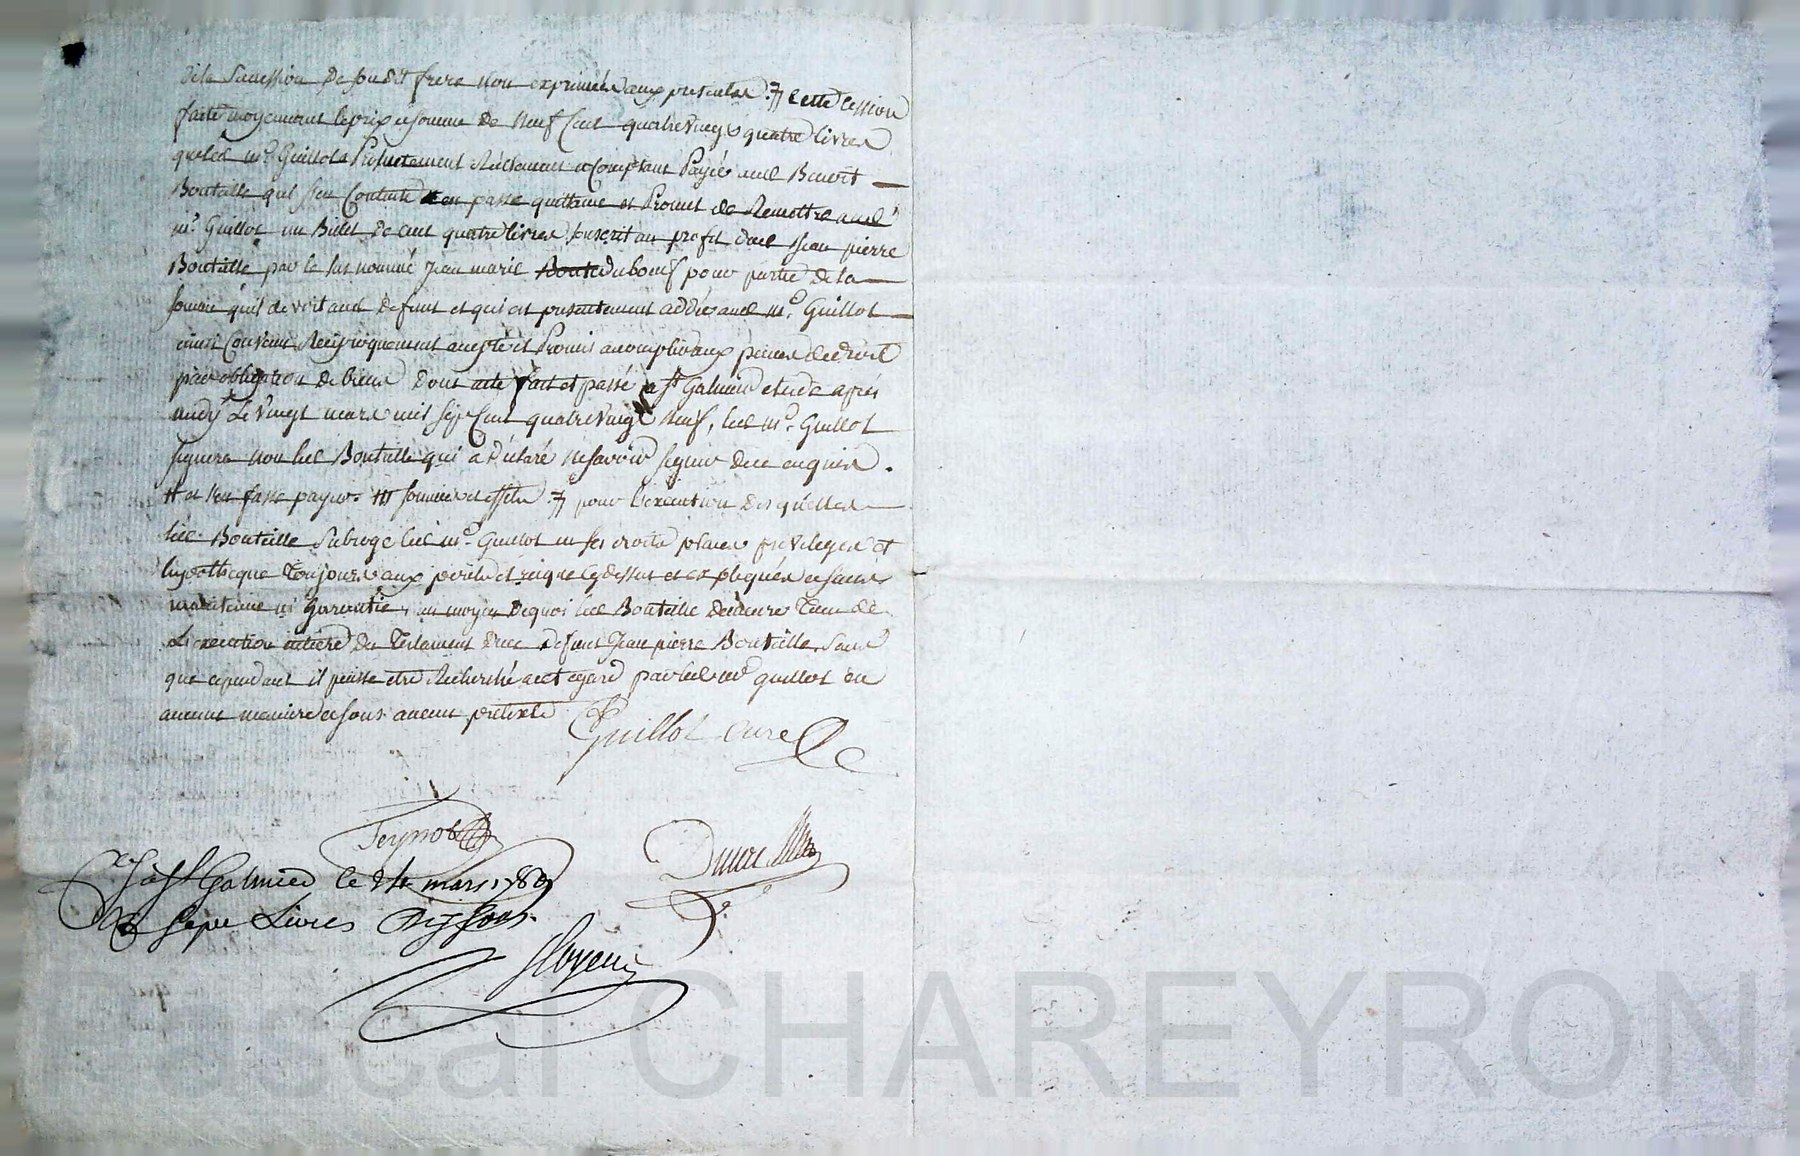 de la Succession de son dit frere non exprimée aux presentes. cette Cession
faite moyennant le prix et somme de Neuf Cent quatre vingt quatre Livres
que led. mr. Guillot a Presentement Reellement et Comptant Payée aud. Benoit
Bouteille qui s'en Contente en passe quittance et Promet de Remettre aud.
mr. Guillot un Billet de cent quatre livres souscrit au profit dud. Jean pierre
Bouteille par le sus nommé Jean marie Duboeuf pour partie de la
somme qu'il devoit aud. Defunt et qui est presentement aud. mr. Guillot
ainsi Convenu Reciproquement accepté et Promis accomplir aux peines de droit
par obligation de biens Dont acte fait et passé a st. Galmier etude après
midy Le Vingt mars mil sept Cent quatre Vingt Neuf, led. mr. Guillot
signera non led. Bouteille qui a Declaré ne savoir signer de ce enquis.
et s'en fasse payer. sommes et effets. pour l'execution desquelles
led. Bouteille subroge led. mr. Guillot en ses droits places privileges et
hypotheque Toujours aux perils et risque cy dessus expliqués et sans
maintenue ni Garantie, au moyen de quoi led. Bouteille demeure
L'execution entiere du Testament dud. defunt Jean pierre Bouteille, sans
que cependant il puisse etre Recherché a cet egard par led. mr. guillot en
aucune maniere et sous aucun pretexte
Guillot Curé
Teynot
Duc
à St Galmier le 24 mars 1789
sept Livres Dix sous.
Pascal CHAREYRON